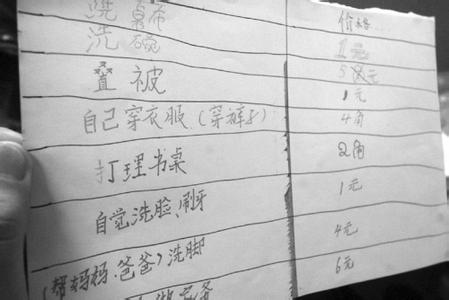 价格
洗 1元
洗碗 5元
叠被 1元
自己穿衣服(穿裤子) 4角
打理书桌 2角
自觉洗脸、刷牙 1元
(帮妈妈.爸爸)洗脚 4元
6元